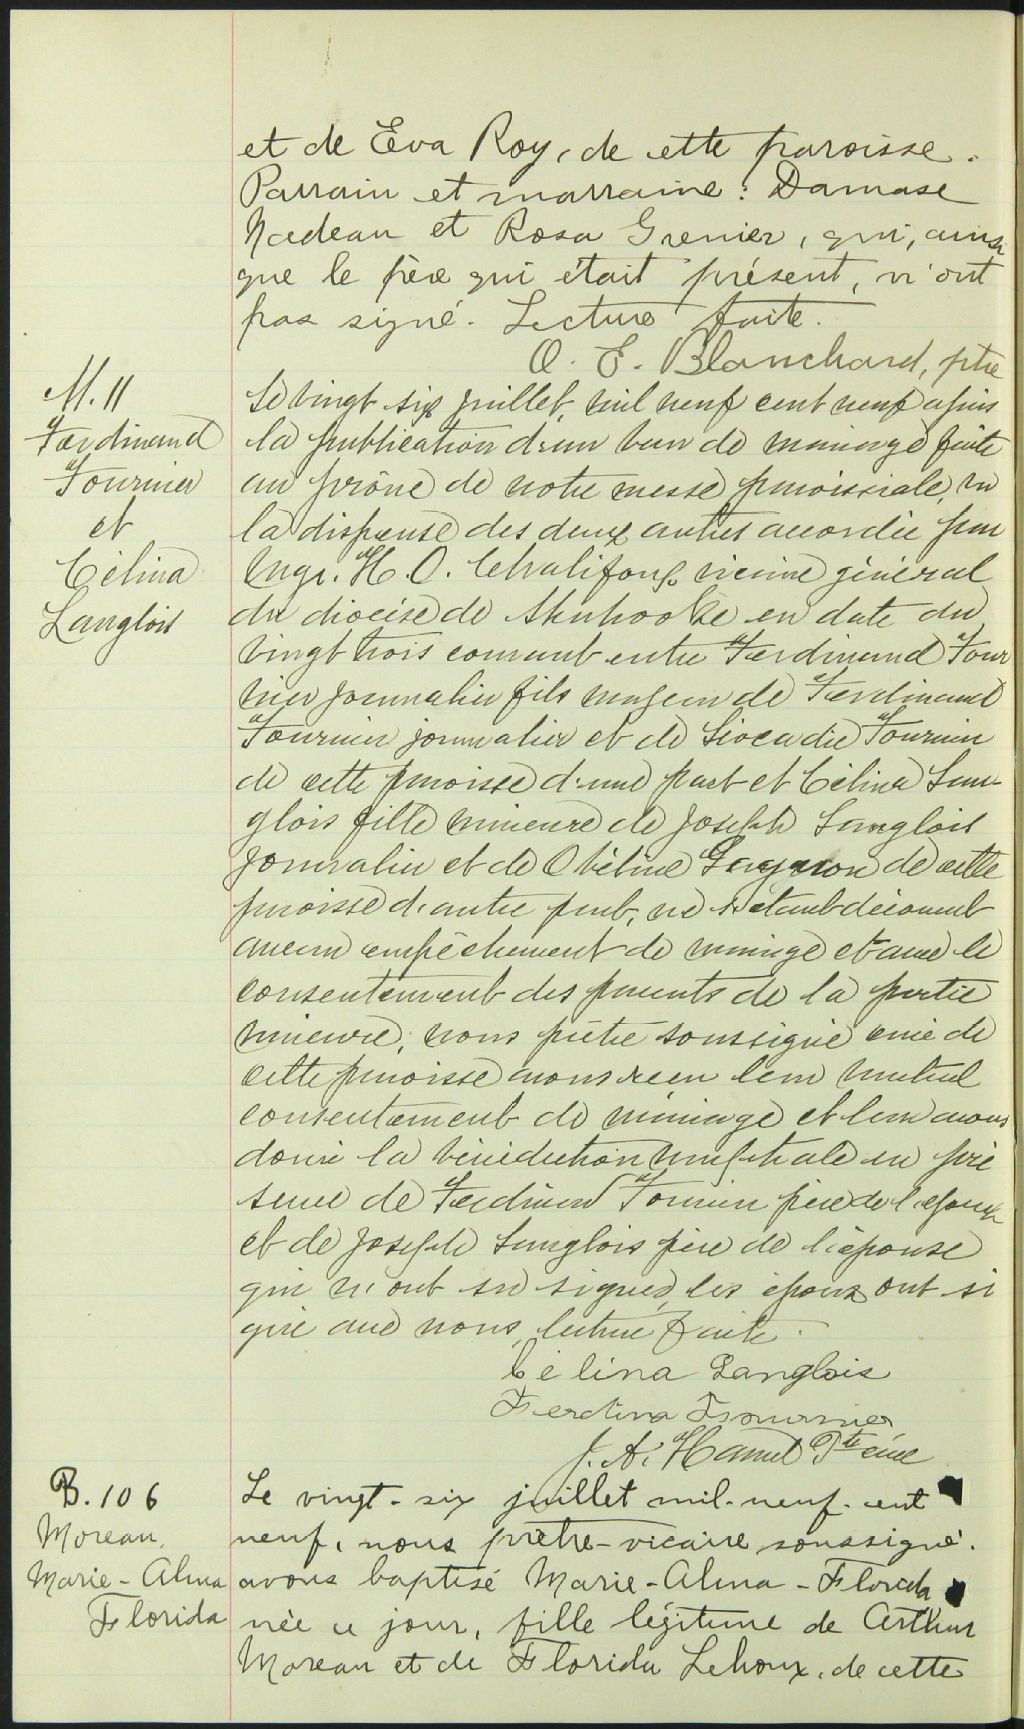 et de Eva Roy, de cette paroisse.
Parrain et marraine : Damase
Nadeau et Rosa Grenier, qui, ainsi
que le père qui était présent, n'ont
pas signé. Lecture faite.
O. E. Blanchard, ptre
M. 11
Ferdinand
Fournier
et
Célina
Langlois
Le vingt six juillet, mil neuf cent neuf après
la publication d'un ban de mariage faite
au prône de notre messe paroissiale, vu
la dispense des deux autres accordée par
Mgr. H. O. Chalifoux vicaire général
du diocèse de Sherbrooke en date du
vingt trois courant entre Ferdinand Four
nier journalier fils majeur de Ferdinand
Fournier journalier et de Léocadie Fournier
de cette paroisse d'une part et Célina Lan-
glois fille mineure de Joseph Langlois
journalier et de Obéline Gagnon de cette
paroisse d'autre part, ne s'étant découvert
aucun empêchement de mariage et avec le
consentement des parents de la partie
mineure, nous prêtre soussigné curé de
cette paroisse avons reçu leur mutuel
consentement de mariage et leur avons
donné la bénédiction nuptiale en pré
sence de Ferdinand Fournier père de l'époux
et de Joseph Langlois père de l'épouse
qui n'ont su signer, les époux ont si
gné avec nous, lecture faite.
Célina Langlois
Ferdina Fournier
J. A. Hamel Ptre curé
B. 106
Moreau,
Marie-Alma
Florida
Le vingt-six juillet mil-neuf-cent
neuf, nous prêtre-vicaire soussigné,
avons baptisé Marie-Alma-Florida
née ce jour, fille légitime de Arthur
Moreau et de Florida Lehoux, de cette